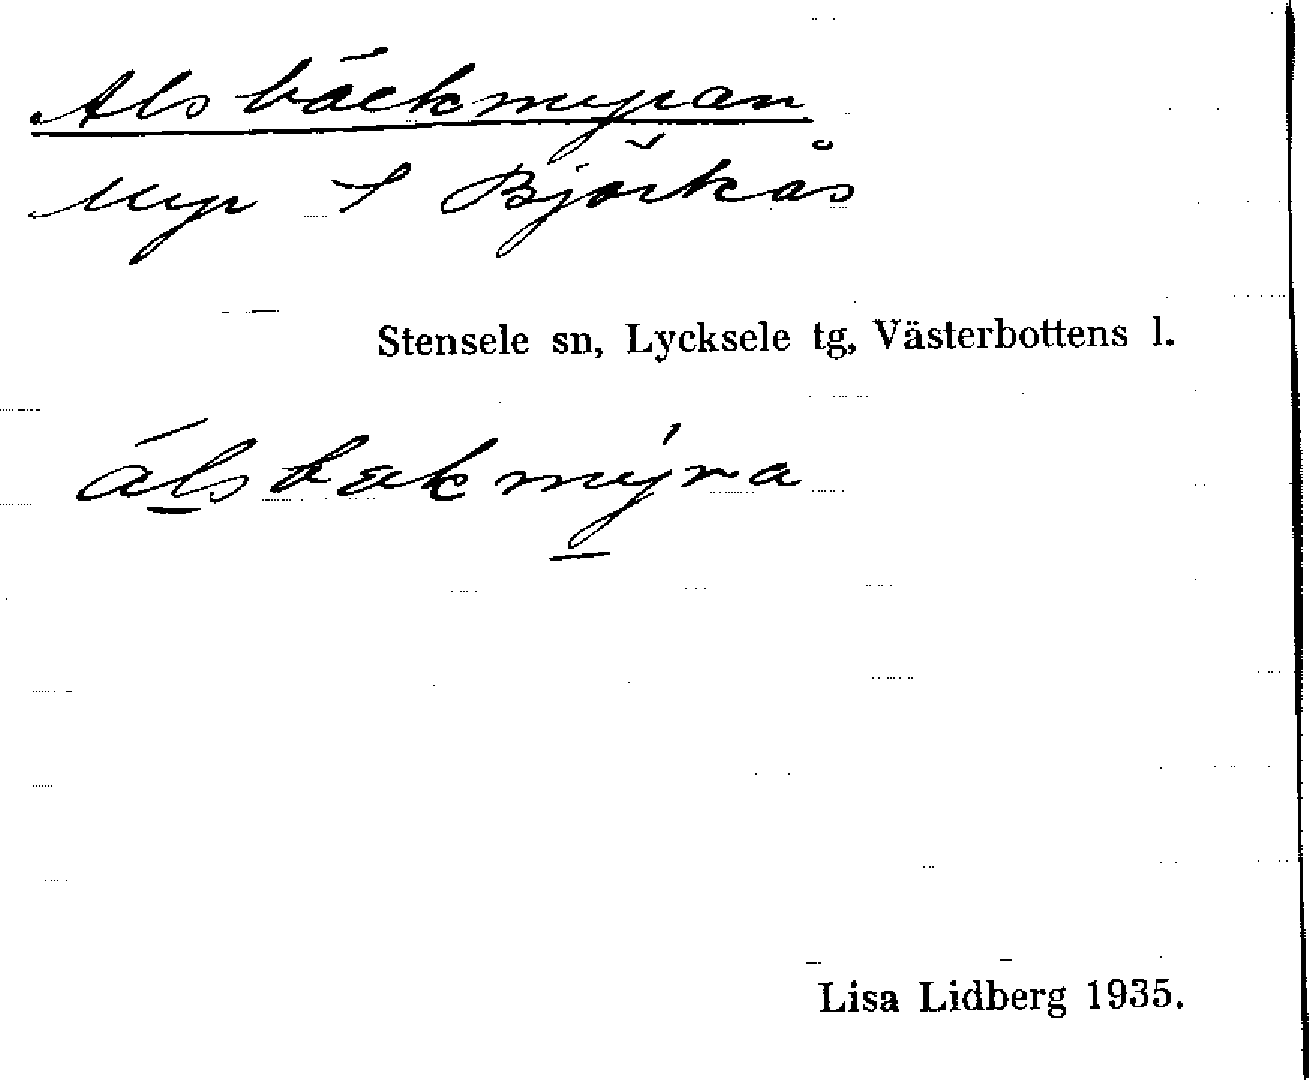 Alsbäckmyran
Myr S Björkås
Stensele sn, Lycksele tg, Västerbottens l.
álsbækmýra
Lisa Lidberg 1935.